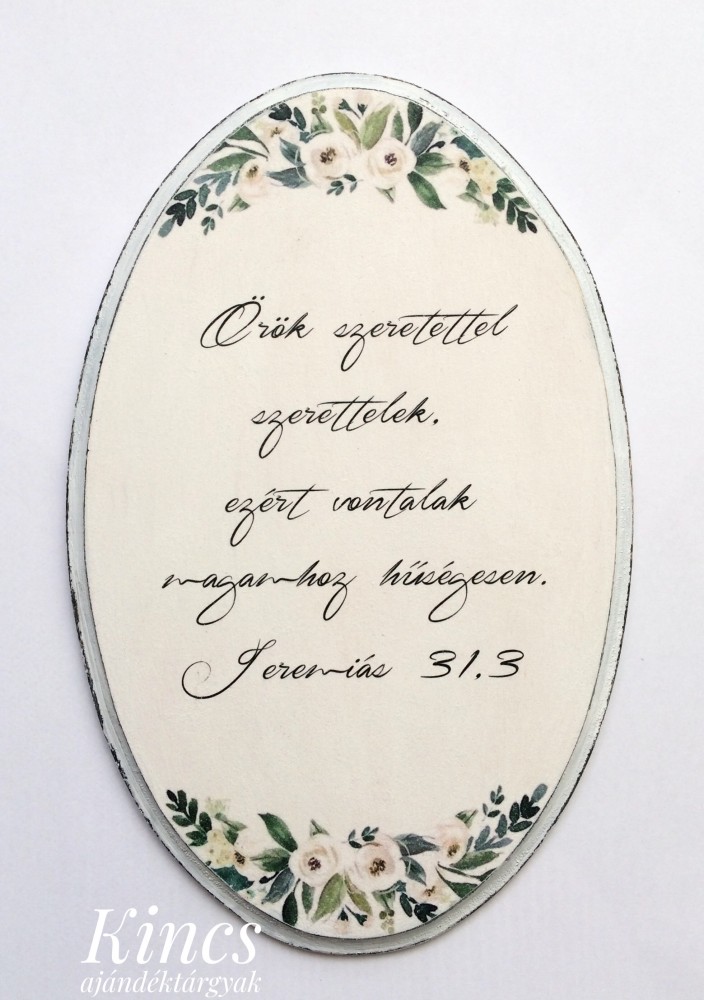 Örök szeretettel
szerettelek,
ezért vontalak
magamhoz hűségesen.
Jeremiás 31.3
Kincs
ajándéktárgyak